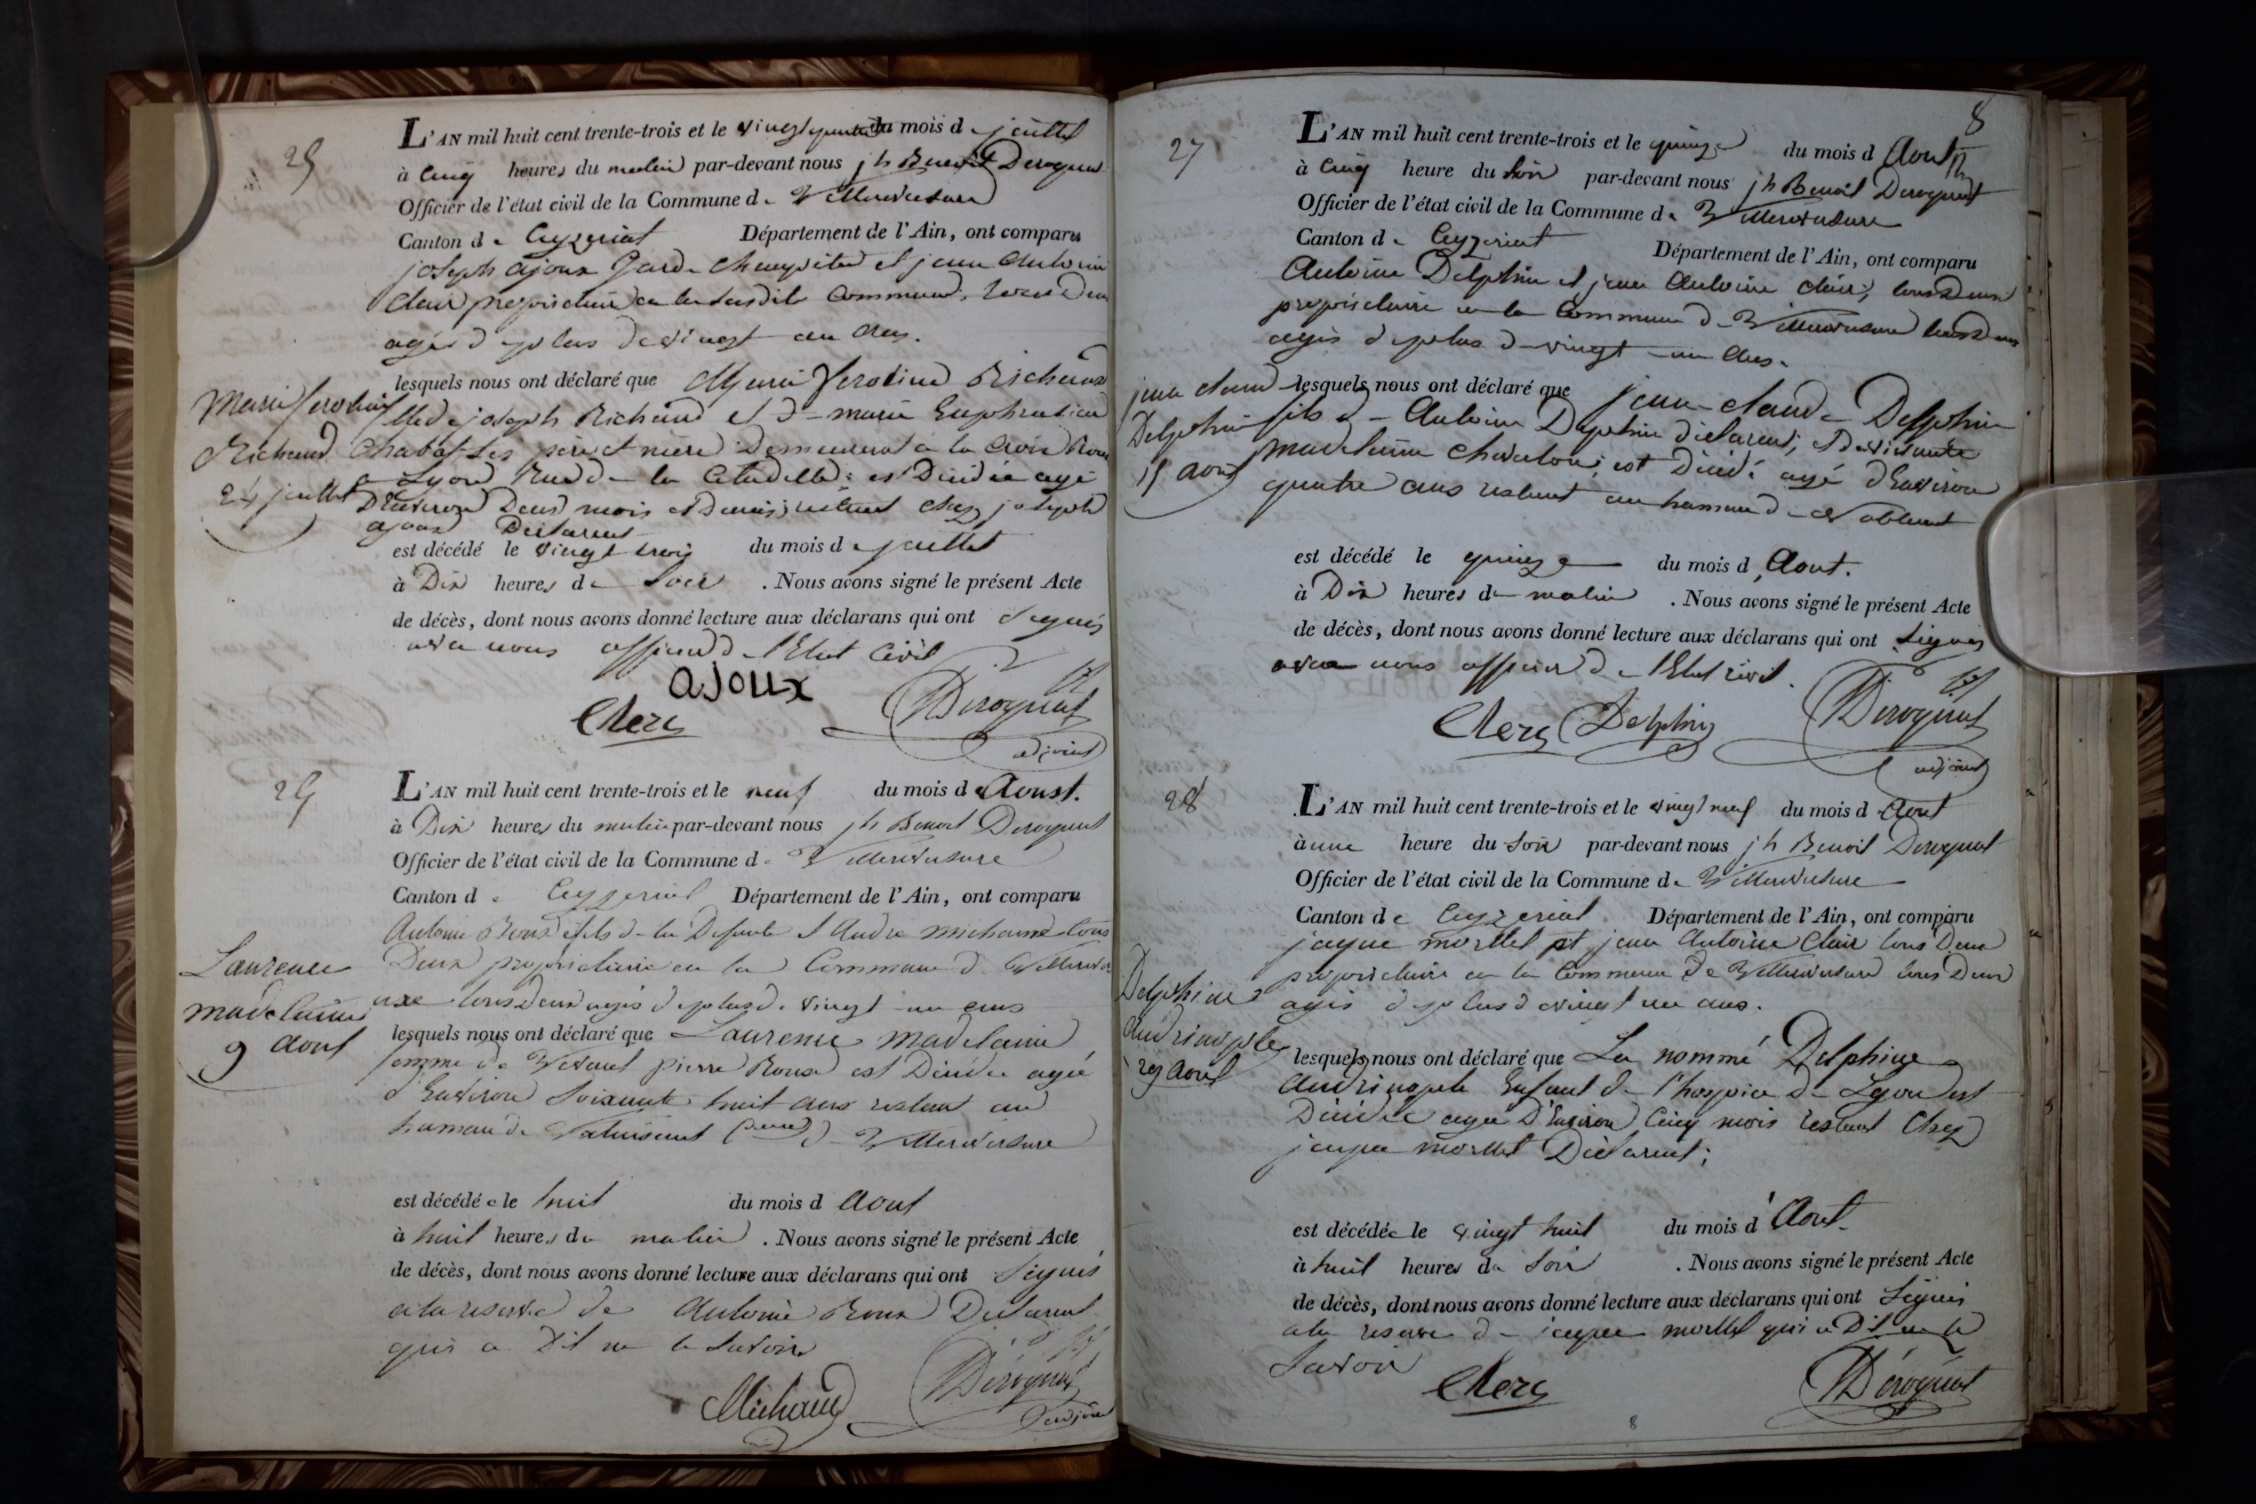 25
L'AN mil huit cent trente-trois et le vingt quatre du mois de juillet
à cinq heures du matin par-devant nous jh Benoit Deroguat
Officier de l'état civil de la Commune de Villereversure
Canton de Ceyzeriat Département de l'Ain, ont comparu
joseph ajoux Garde champêtre et jean Antoine
clair propriétaire en la susdite Commune, tous deux
agés de plus de vingt un ans.
lesquels nous ont déclaré que Marie Richaud
fille de joseph Richaud et de marie
Chabot ses père et mère Demeurant a la croix Rousse
a Lyon Rue de la Citadelle; est Décédée agé
D'Environ Deux mois et Demis; restant chez joseph
ajoux Declarant
est décédé le vingt trois du mois de juillet
à Dix heures de Soir . Nous avons signé le présent Acte
de décès, dont nous avons donné lecture aux déclarans qui ont signés
avec nous officier de l'Etat civil
ajoux
Clerc Deroguat
adjoint
Marie
Richaud
24 juillet
L'AN mil huit cent trente-trois et le neuf du mois de Aoust.
à Dix heures du matin par-devant nous jh Benoit Deroguat
Officier de l'état civil de la Commune de Villereversure
Canton de Ceyzeriat Département de l'Ain, ont comparu
Antoine Roux fils de la Defunte et Andre michaud tous
Deux propriétaire en la Commune de Villerever
sure tous deux agés de plus de vingt un ans
lesquels nous ont déclaré que Laurence madelaine
femme de Vivant pierre Roux est Décédée agée
d'Environ Soixante huit ans restant au
hamau de Villereversure
est décédée le huit du mois d Aout
à huit heures du matin . Nous avons signé le présent Acte
de décès, dont nous avons donné lecture aux déclarans qui ont Signés
a la reserve de Antoine Roux Declarant
qui a Dit ne le Savoir
Michaud Deroguat
adjoint
Laurence
madelaine
9 aout
8
27
L'AN mil huit cent trente-trois et le quinze du mois d Aout
à cinq heure du soir par-devant nous jh Benoit Deroguat
Officier de l'état civil de la Commune de Villereversure
Canton de Ceyzeriat Département de l'Ain, ont comparu
Antoine Delphin et jean Antoine clair, tous deux
propriétaire en la Commune de Villereversure tous deux
agés de plus de vingt un ans.
lesquels nous ont déclaré que jean-claude Delphin
fils de Antoine Delphin déclarant; et de vivante
madelaine Chevalon; est Décédé agé d'Environ
quatre ans restant au hamau de
est décédé le quinze du mois d Aout.
à Dix heures de matin . Nous avons signé le présent Acte
de décès, dont nous avons donné lecture aux déclarans qui ont signés
avec nous officier de l'Etat civil.
Clerc Delphin Deroguat
adjoint
jean claude
Delphin
15 aout
28
L'AN mil huit cent trente-trois et le vingt neuf du mois d Aout
à une heure du soir par-devant nous jh Benoit Deroguat
Officier de l'état civil de la Commune de Villereversure
Canton de Ceyzeriat Département de l'Ain, ont comparu
jaque mortel et jean Antoine Clair tous Deux
propriétaire en la Commune de Villereversure tous Deux
agés de plus de vingt un ans.
lesquels nous ont déclaré que La nommé Delphine
Andrinople Enfant de l'hospice de Lyon est
Décédée agée D'Environ Cinq mois restant Chez
jaque mortel Déclarant;
est décédée le vingt huit du mois d Aout.
à huit heures du Soir . Nous avons signé le présent Acte
de décès, dont nous avons donné lecture aux déclarans qui ont Signés
a la reserve de jaque mortel qui a Dit ne le
Savoir
Clerc Deroguat
Delphine
Andrinople
29 Aout
8